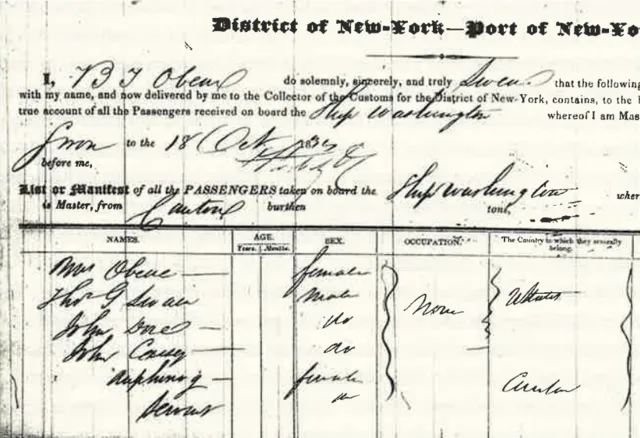 District of New-York—Port of New-Yo
I, B T Obear do solemnly, sincerely, and truly Swear that the following
with my name, and now delivered by me to the Collector of the Customs for the District of New-York, contains, to the
true account of all the Passengers received on board the Ship Washington whereof I am Mas
Sworn to the 18 Oct
before me,
List or Manifest of all the PASSENGERS taken on board the Ship Washington wher
is Master, from Canton burthen tons,
NAMES. AGE. SEX. OCCUPATION. The Country to which they severally belong.
Years. Months.
Mrs Obear female
Thos G Swan Male
John do None
John Causey do
female Canton
Servant do